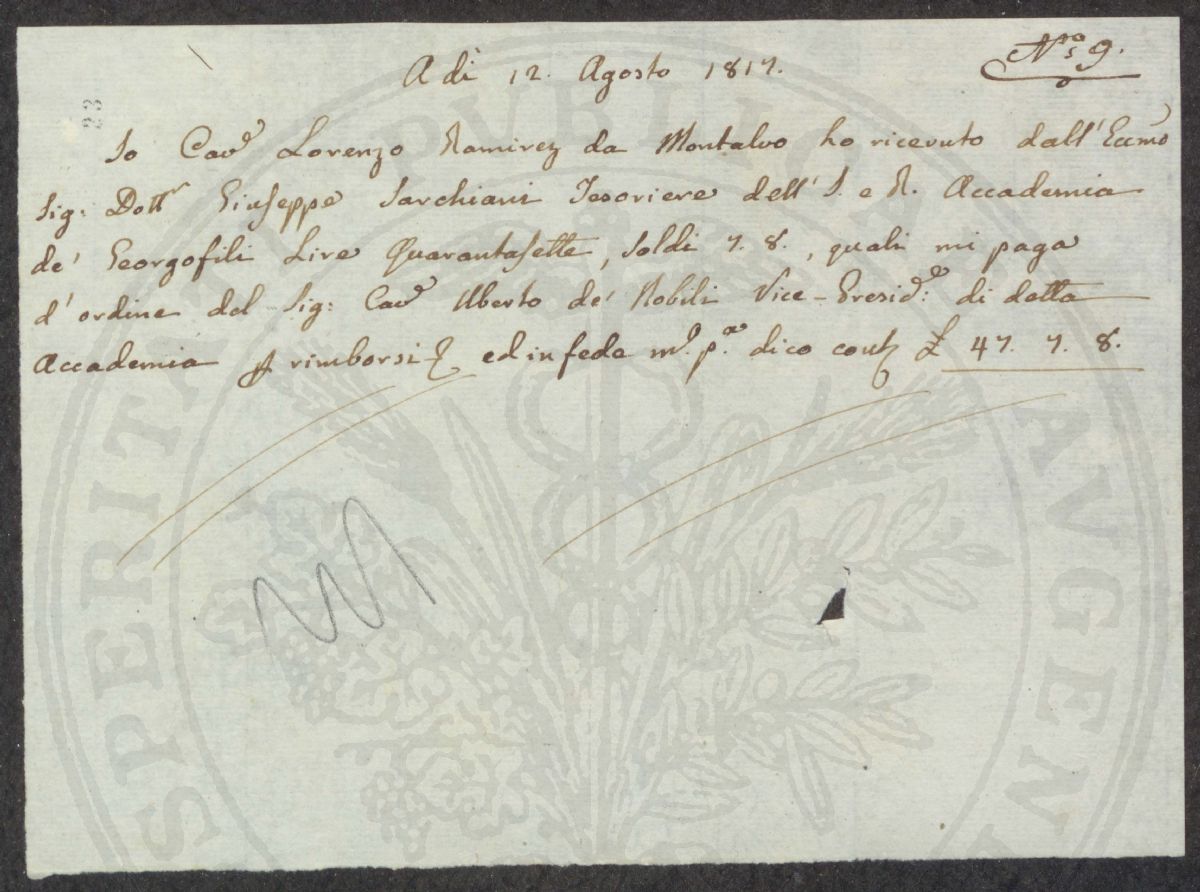 Nº 9.
A dì 12. Agosto 1817.
23
Io Cavᵉ Lorenzo Ramirez da Montalvo ho ricevuto dall' Eccmo
Sig: Dottʳ Giuseppe Sarchiani Tesoriere dell' I. e R. Accademia
de' Georgofili Lire Quarantasette, soldi 7. 8., quali mi paga
d' ordine del Sig: Cavᵉ Uberto de' Nobili Vice-Presidᵉ: di detta
Accademia rimborsi ed in fede mº. pª. dico £ 47. 7. 8.
SPERITATI PUBLICAE AUGEN